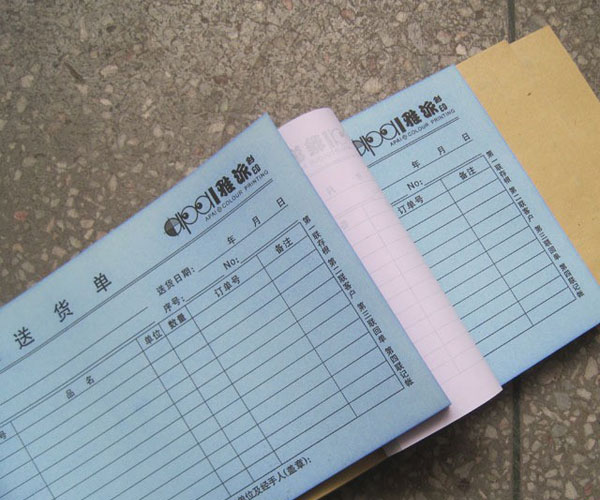 雅派彩印
APAI@COLOUR PRINTING
送货单
年 月 日
送货日期:
No:
序号:
号 品名 单位 数量 订单号 备注
第一联存根 第二联客户 第三联回单 第四联记账
单位及经手人(盖章):
雅派彩印
APAI@COLOUR PRINTING
年 月 日
No:
订单号 备注
第一联存根 第二联客户 第三联回单 第四联记账